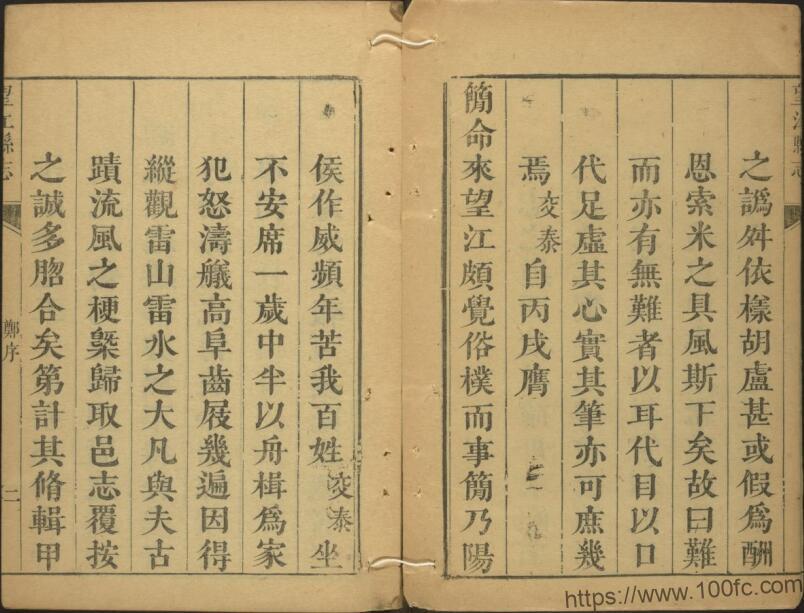 望江縣志
之譌舛依樣胡盧甚或假爲酬
恩索米之具風斯下矣故曰難
而亦有無難者以耳代目以口
代足虛其心實其筆亦可庶幾
焉交泰自丙戌膺
簡命來望江頗覺俗樸而事簡乃陽
侯作威頻年苦我百姓交泰坐
不安席一歲中半以舟楫爲家
犯怒濤艤高阜齒屐幾遍因得
縱觀雷山雷水之大凡與夫古
蹟流風之梗槩歸取邑志覆按
之誠多脗合矣第計其脩輯甲
望江縣志
鄭序
二
https://www.100fc.com